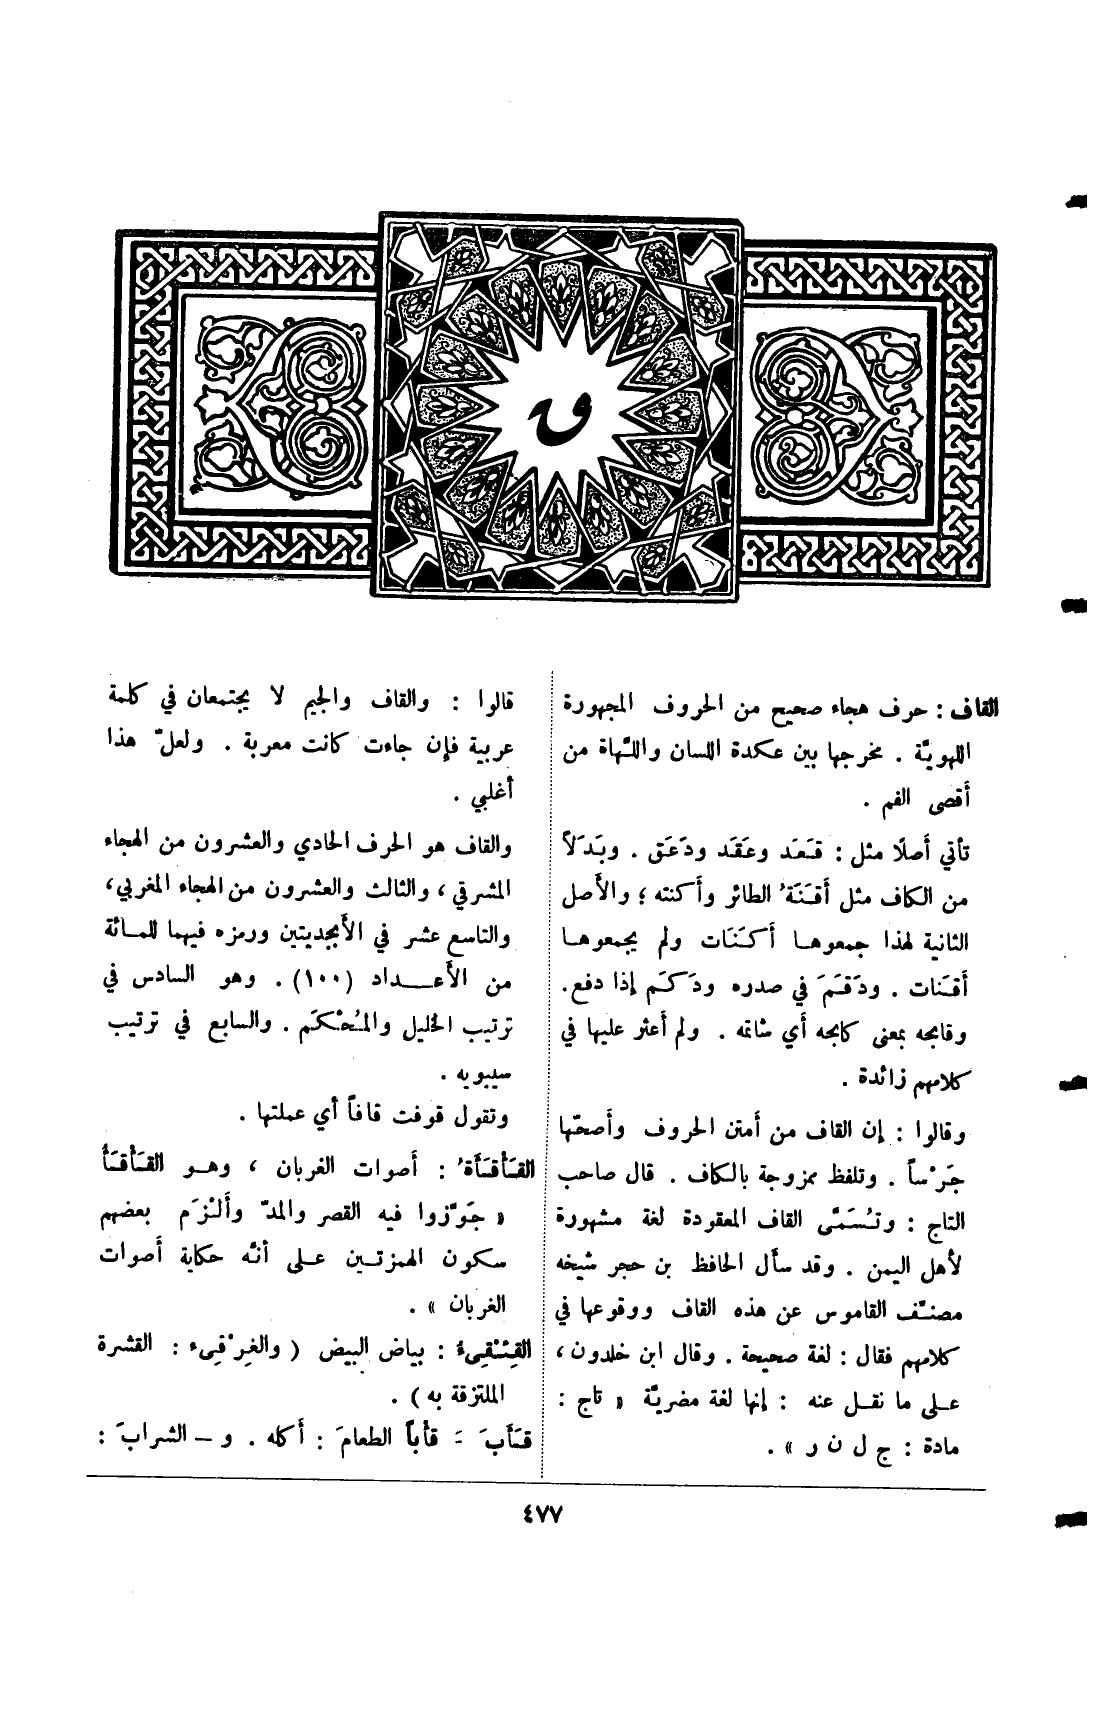 ق
القاف : حرف هجاء صحيح من الحروف المجهورة
اللهويّة . مخرجها بين عكدة اللسان واللَّهاة من
أقصى الفم .
تأتي أصلًا مثل : قَعَد وعَقَد ودَعَق . وبَدَلاً
من الكاف مثل أقنَةُ الطائر وأكنته ؛ والأصل
الثانية لهذا جمعوها أكَنَات ولم يجمعوها
أقَنات . ودَقَمَ في صدره ودَكَم إذا دفع .
وقابحه بمعنى كابحه أي شاتمه . ولم أعثر عليها في
كلامهم زائدة .
وقالوا : إن القاف من أمتن الحروف وأصحّها
جَرْساً . وتلفظ ممزوجة بالكاف . قال صاحب
التاج : وتُسَمَّى القاف المعقودة لغة مشهورة
لأهل اليمن . وقد سأل الحافظ بن حجر شيخه
مصنّف القاموس عن هذه القاف ووقوعها في
كلامهم فقال : لغة صحيحة . وقال ابن خلدون ،
على ما نقل عنه : إنها لغة مضريّة « تاج :
مادة : ج ل ن ر » .
قالوا : والقاف والجيم لا يجتمعان في كلمة
عربية فإن جاءت كانت معربة . ولعلّ هذا
أغلبي .
والقاف هو الحرف الحادي والعشرون من الهجاء
المشرقي ، والثالث والعشرون من الهجاء المغربي ،
والتاسع عشر في الأبجديتين ورمزه فيهما للمائة
من الأعداد (١٠٠) . وهو السادس في
ترتيب الخليل والمُحْكَم . والسابع في ترتيب
سيبويه .
وتقول قوفت قافاً أي عملتها .
القَأْقَأَةُ : أصوات الغربان ، وهو القَأْقَأ
« جَوّزوا فيه القصر والمدّ وألْزَم بعضهم
سكون الهمزتين على أنّه حكاية أصوات
الغربان » .
القِئْقِىءُ : بياض البيض ( والغِرْقِىء : القشرة
الملتزقة به ) .
قَأَبَ َ قأباً الطعامَ : أكله . و – الشرابَ :
٤٧٧